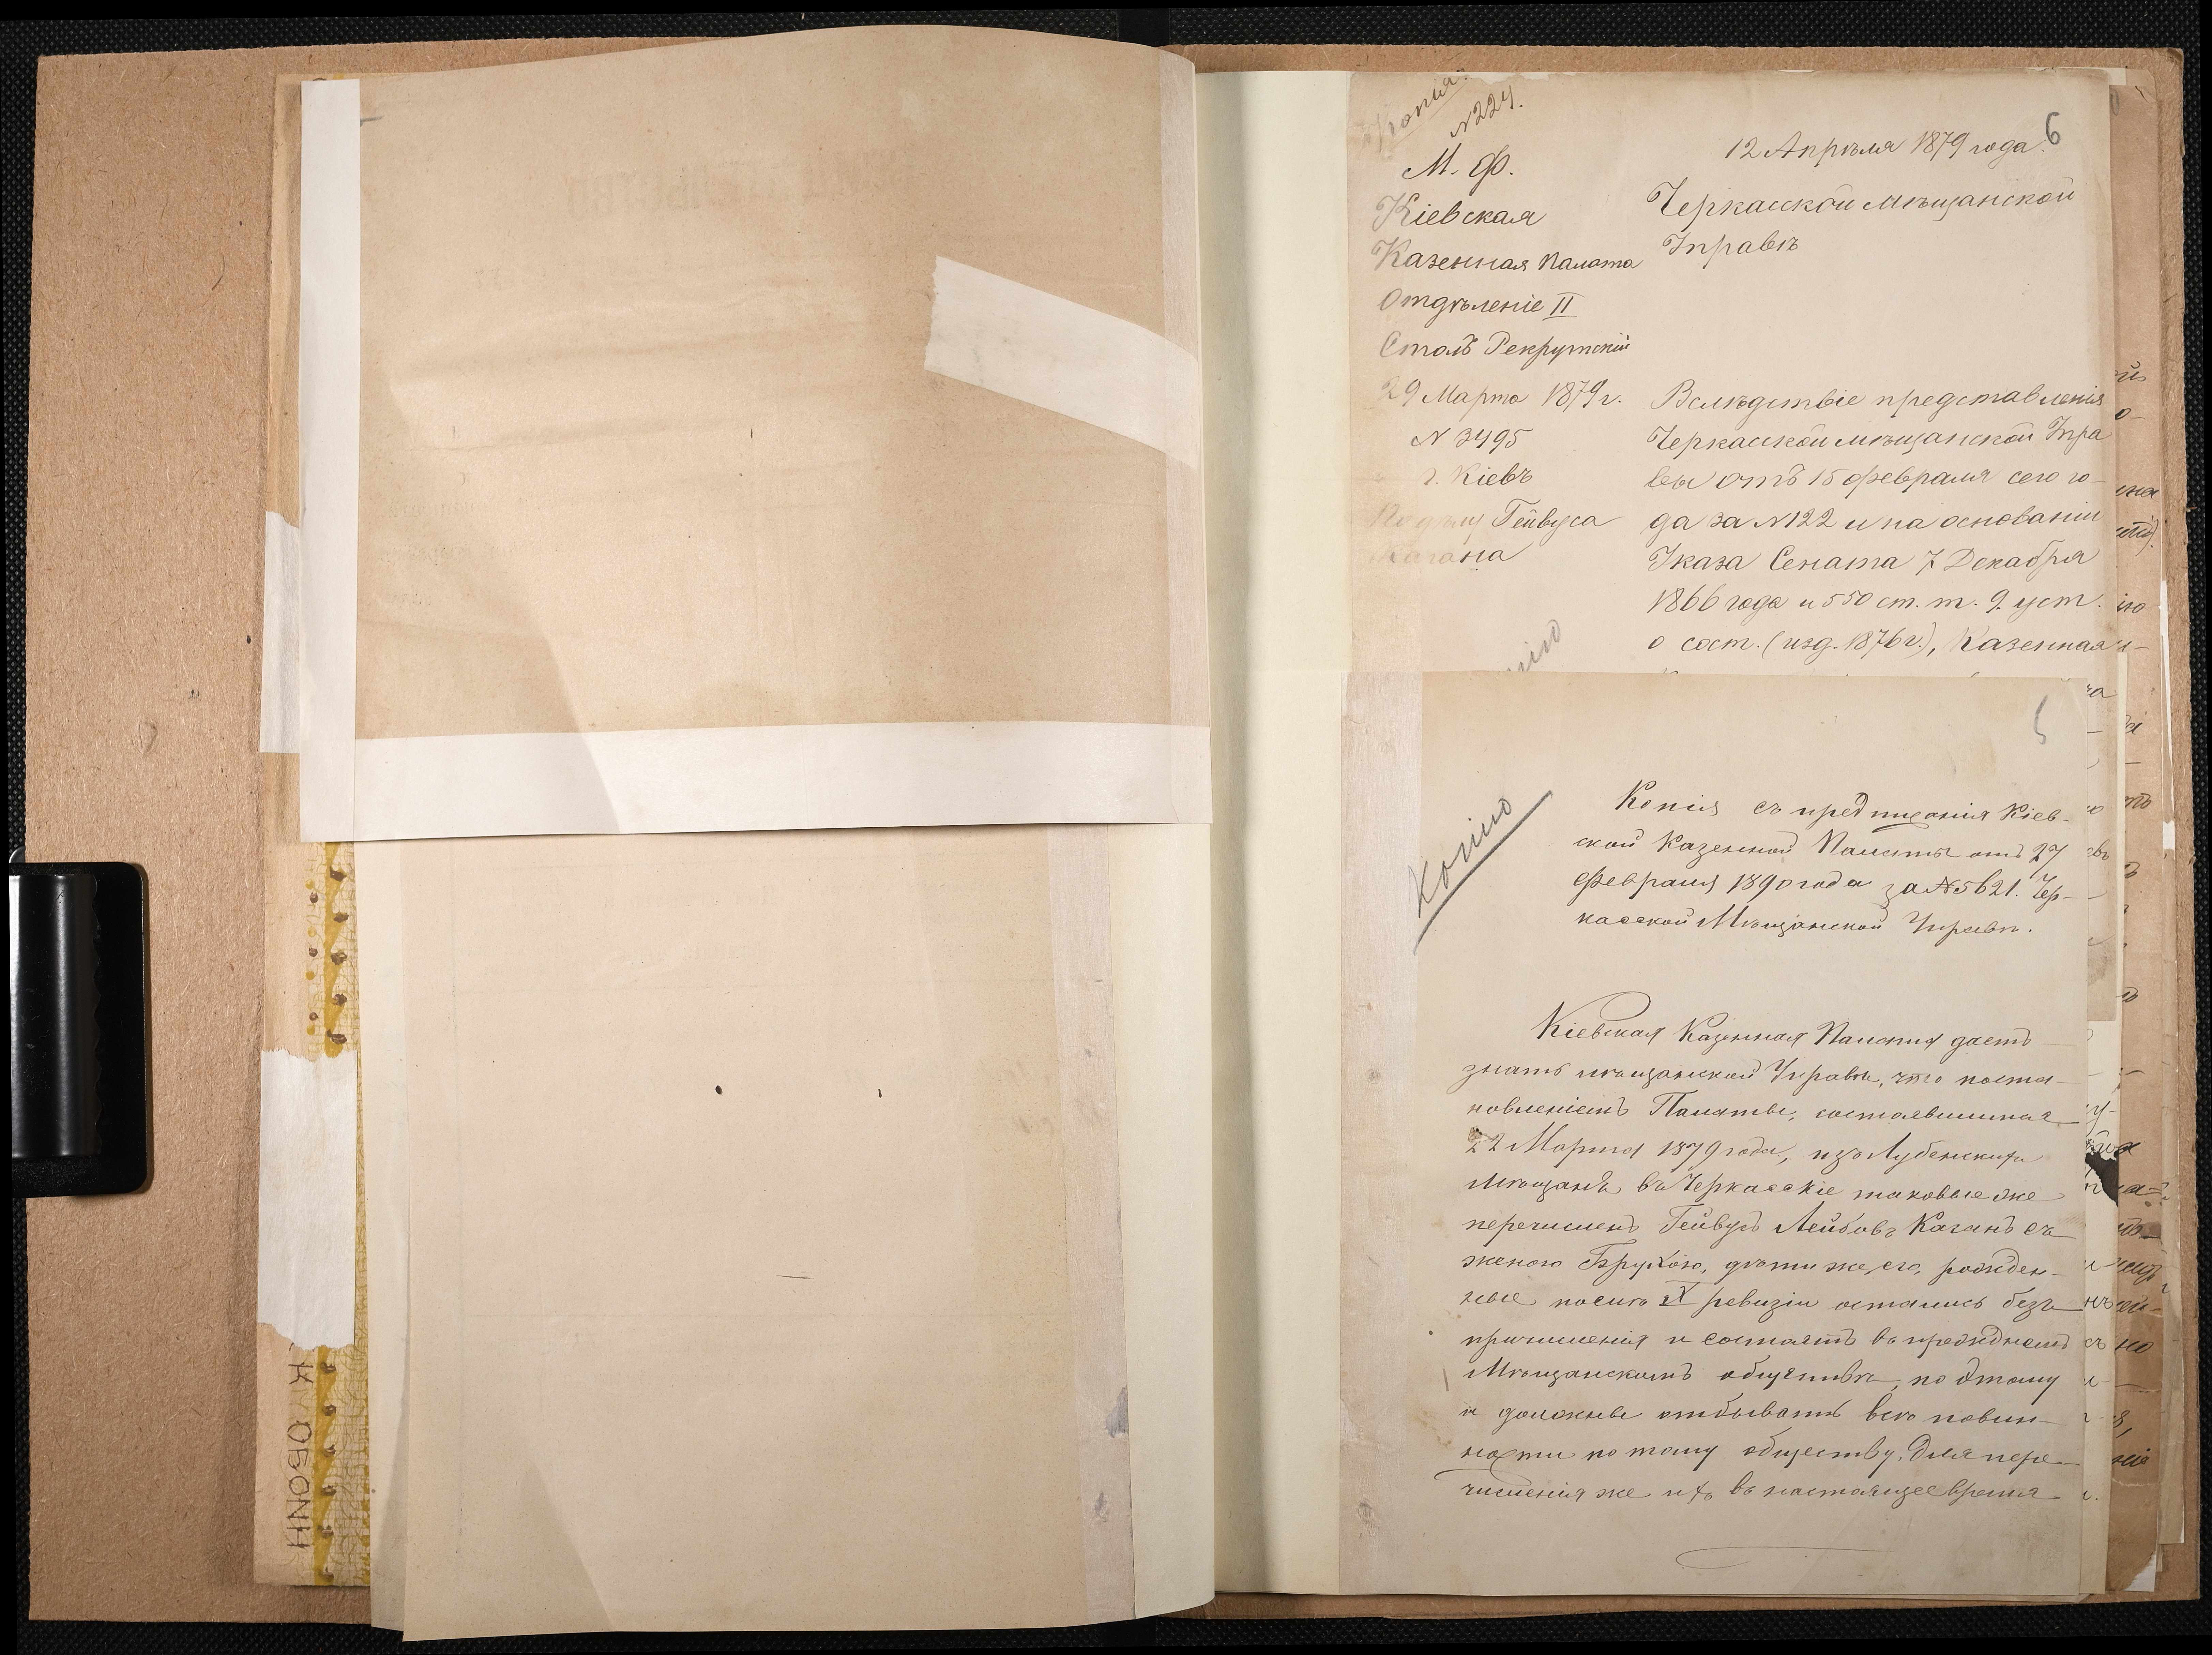 Копія
N 224.
6
12 Апрѣля 1879 года
М. Ф.
Кіевская
Казенная Палата
Отдѣленіе II
Столъ Рекрутскій
29 Марта 1879 г.
N 3495
г. Кіевъ
По дѣлу Гейвуса
Кагана
Черкасской мѣщанской
Управѣ
Вслѣдствіе представленія
Черкасской мѣщанской Упра
вы отъ 15 февраля сего го-
да за N 122 и на основаніи
Указа Сената 7 Декабря
1866 года и 550 ст. т. 9. уст.
о сост. (изд. 1876 г.), Казенная
5
Копію
Копія съ предписанія Кіев-
ской Казенной Палаты отъ 27
февраля 1890 года за N 5621. Чер-
касской Мѣщанской Управѣ.
Кіевская Казенная Палата даетъ
знать мѣщанской Управѣ, что поста-
новленіемъ Палаты, состоявшимся
22 Марта 1879 года, изъ Лубенскихъ
мѣщанъ въ Черкасскіе таковые же
перечисленъ Гейвусъ Лейбовъ Каганъ съ
женою Брухою, дѣти же его, рожден-
ные послѣ X ревизіи остались безъ
причисленія и состоятъ въ прежнемъ
Мѣщанскомъ обществѣ, по этому
и должны отбывать всѣ повин-
ности по тому обществу. Для пере-
численія же ихъ въ настоящее время